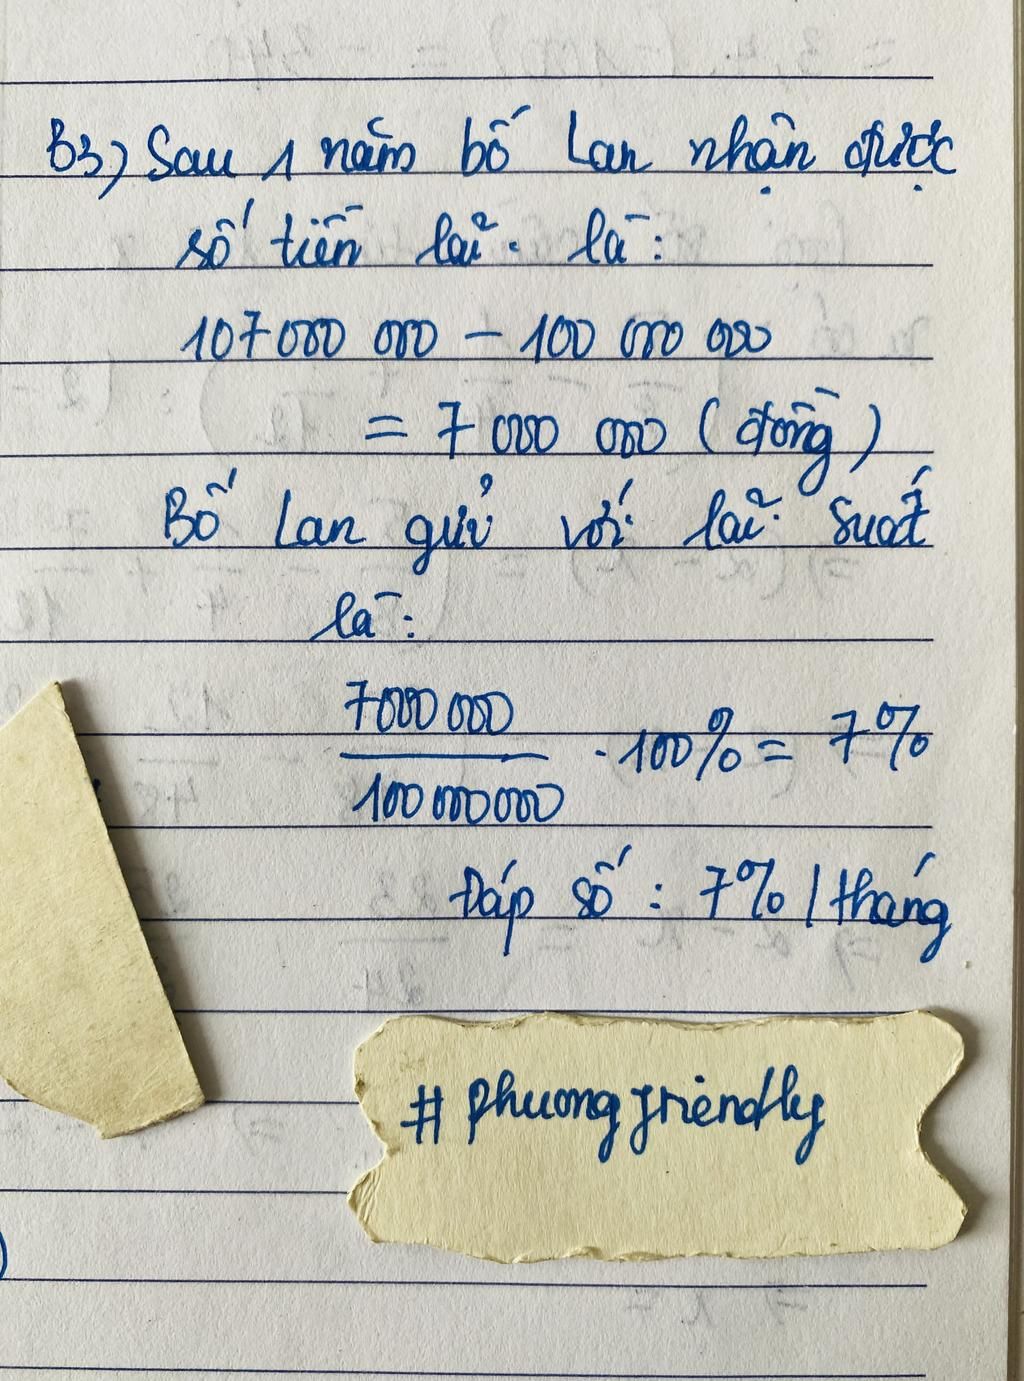 B3) Sau 1 năm bố Lan nhận được
số tiền lãi là:
107 000 000 - 100 000 000
= 7 000 000 (đồng)
Bố Lan gửi với lãi suất
là:
7000 000
100 000 000
. 100% = 7%
Đáp số : 7% / tháng
# phuongfriendly